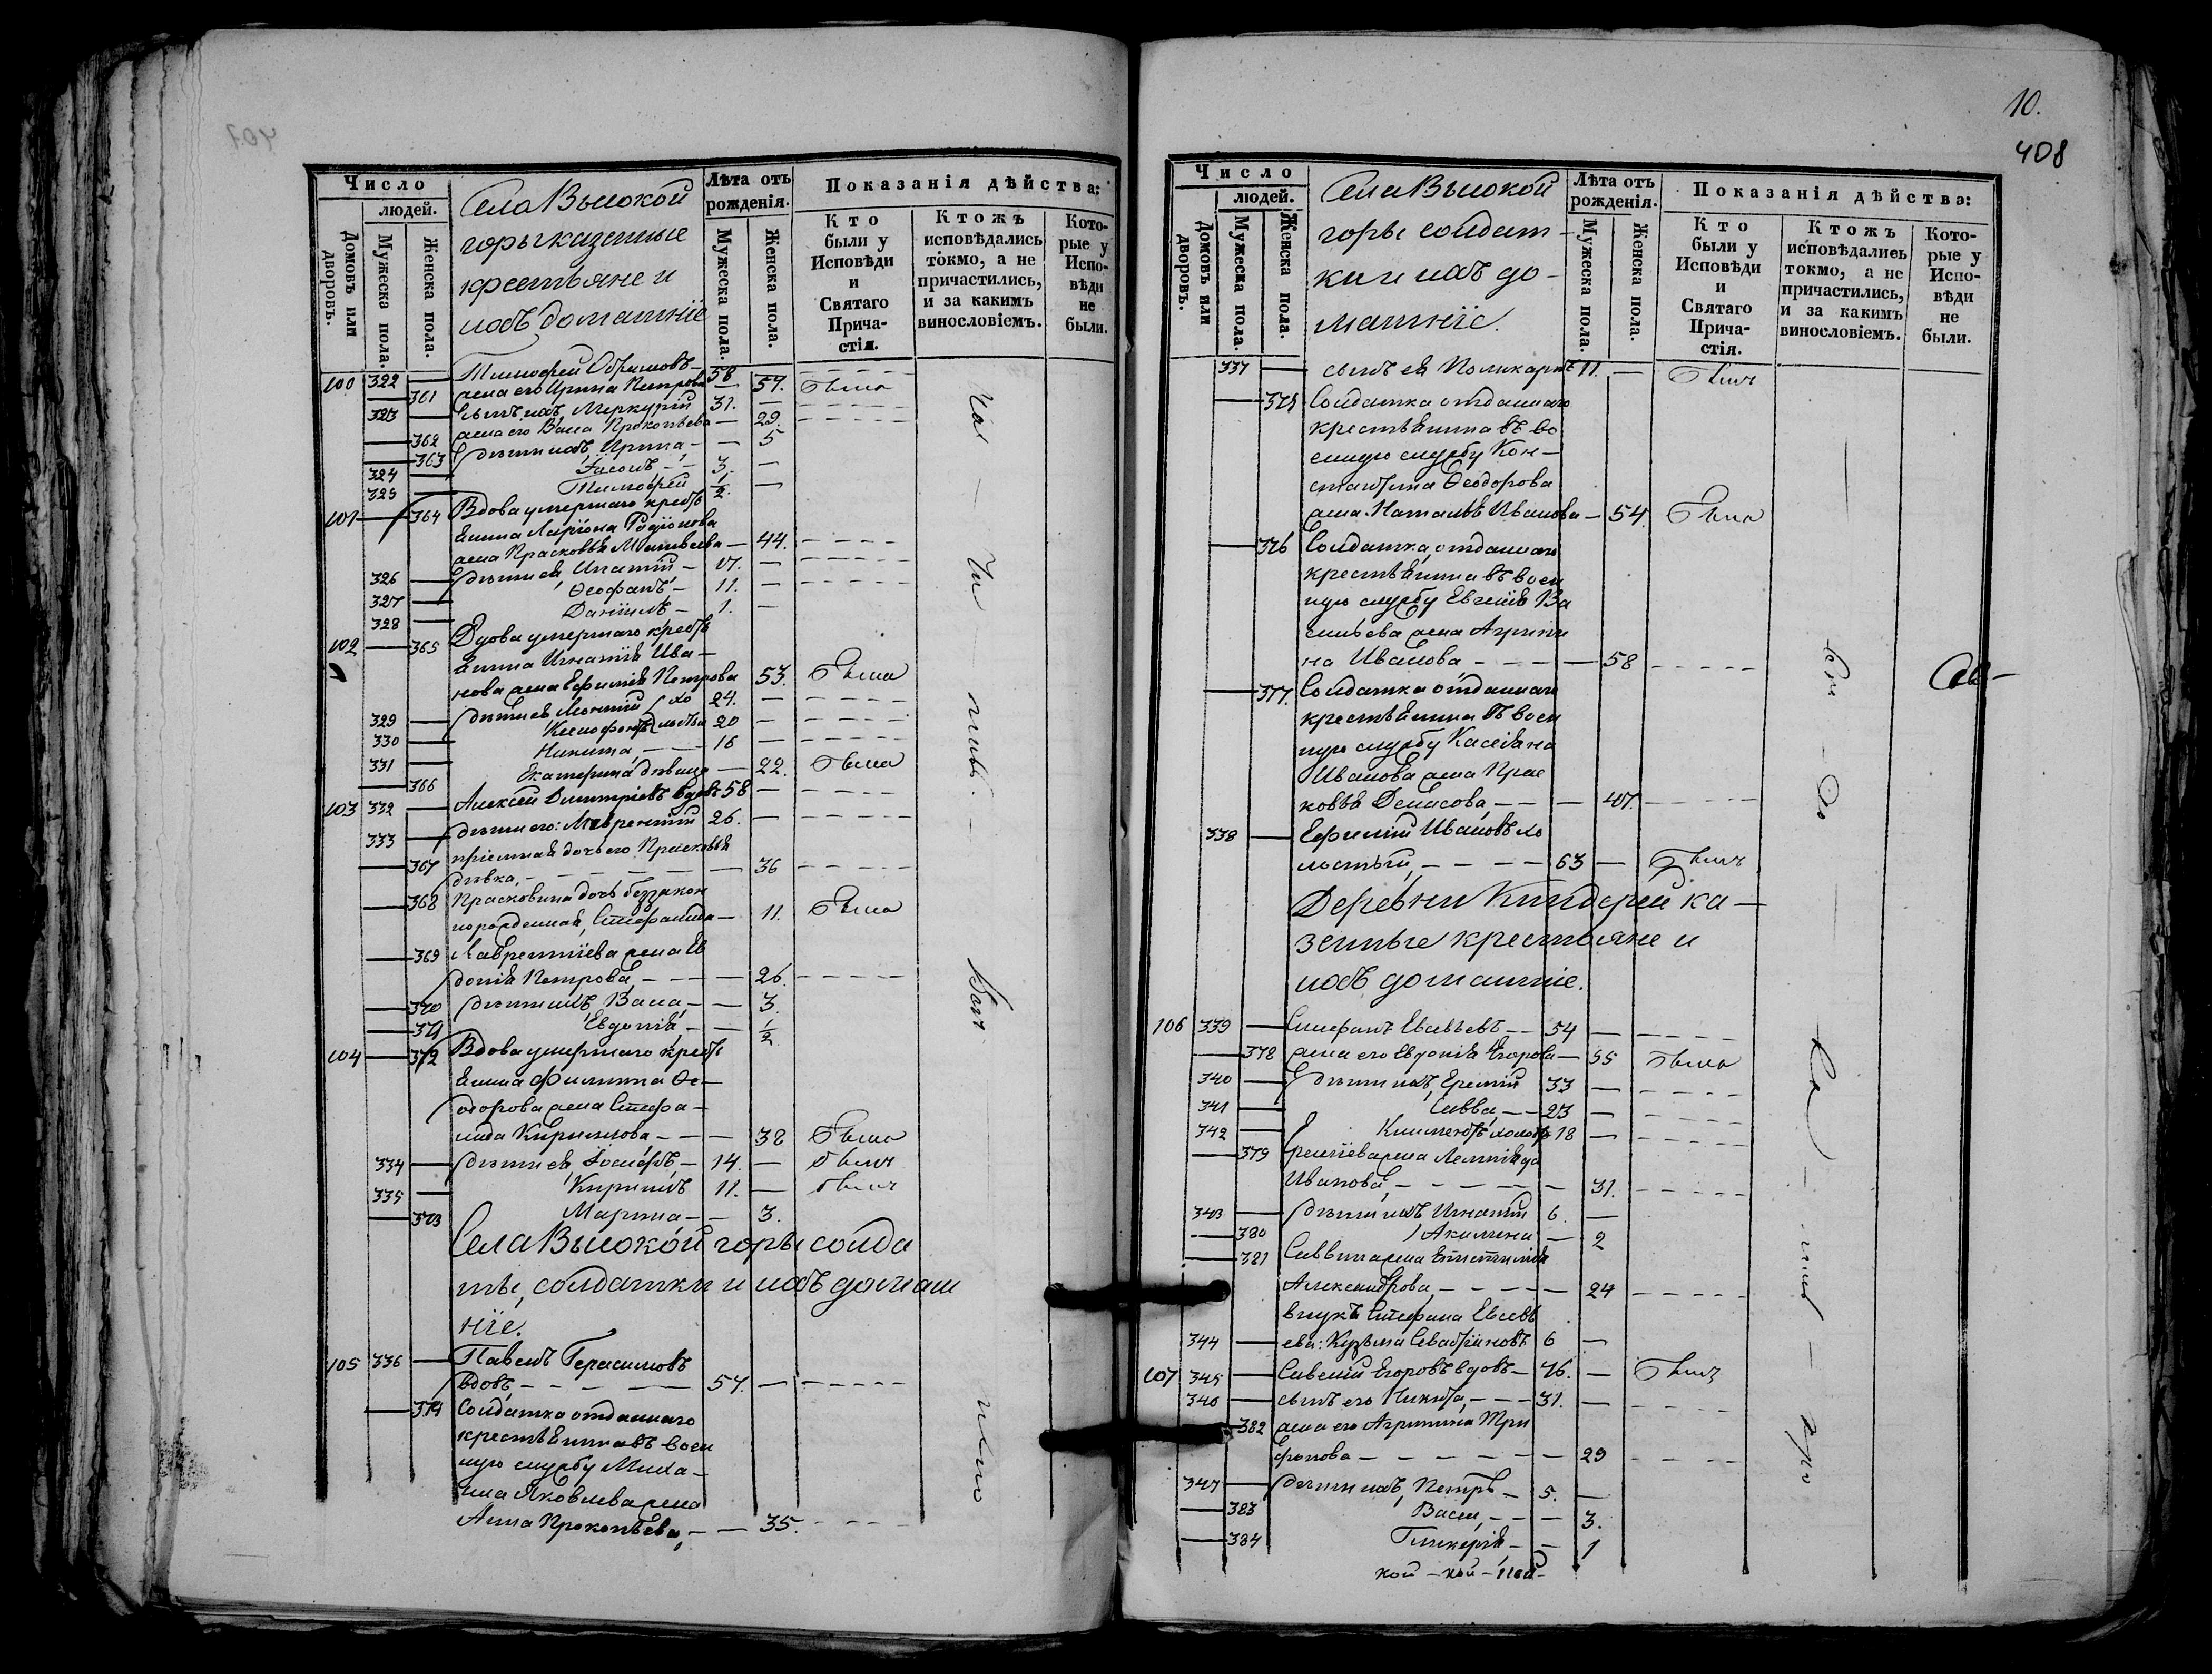 10.
408
Число
людей.
Домовъ или дворовъ.
Мужеска пола.
Женска пола.
Села Высокой
горы казенные
крестьяне и
ихъ домашніе
Лѣта отъ рожденія.
Мужеска пола.
Женска пола.
Показанія дѣйства:
Кто были у Исповѣди и Святаго Причастія.
Ктожъ исповѣдались токмо, а не причастились, и за какимъ винословіемъ.
Которые у Исповѣди не были.
100 322 Тимофей 58
361 жена его Ирина Петрова 57. была
323 Сынъ ихъ Меркурій 31.
362 жена его Васса Прокопьева 29.
363 дѣти ихъ, Ирина 5
324 Іасонъ 3
325 Тимофей 1/2
101 364 Вдова умершаго кресть
янина Ларіона Родіонова
жена Прасковья Матвеева 44.
326 дѣти ея, Игнатій 17.
327 Ѳеофанъ 11.
328 Даніилъ 1.
102 365 Вдова умершаго кресть
янина Игнатія Ива
нова жена Ефимія Петрова 53. была
329 дѣти ея хо 24.
330 Ксенофонтъ лостыи 20
331 Никита 16
366 Екатерина дѣвица 22. была
103 332 Алексѣй Димитріевъ вдовъ 58
333 дѣти его: Лаврентій 26.
367 пріемная дочь его Прасковья
дѣвка, 36
368 Прасковьина дочь беззакон
норожденная, Стефанида 11. была
369 Лаврентіева жена Ев
докія Петрова 26.
370 дѣти ихъ, Васса 3.
371 Евдокія 1/2
104 372 Вдова умершаго кресть
янина Филиппа Ѳе
одорова жена Стефа
нида Кириллова 38 была
334 дѣти ея, Іосифъ 14. былъ
335 Кириллъ 11. былъ
373 Марина 3.
Села Высокой горы солда
ты, солдатки и ихъ домаш
ніе.
105 336 Павелъ Герасимовъ
вдовъ 57.
374 Солдатка отданнаго
крестьянина въ воен
ную службу Миха
ила Яковлева жена
Анна Прокопьева, 35.
Число
людей.
Домовъ или дворовъ.
Мужеска пола.
Женска пола.
Села Высокой
горы солдат
ки и ихъ до
машніе.
Лѣта отъ рожденія.
Мужеска пола.
Женска пола.
Показанія дѣйства:
Кто были у Исповѣди и Святаго Причастія.
Ктожъ исповѣдались токмо, а не причастились, и за какимъ винословіемъ.
Которые у Исповѣди не были.
337 сынъ ея Поликарпъ 11. былъ
375 Солдатка отданнаго
крестьянина въ во
енную службу Кон
стантина Ѳеодорова
жена Наталья Иванова 54. была
376 Солдатка, отданнаго
крестьянина въ воен
ную службу Евгенія Ва
сильева жена Агрипи
на Иванова 58
377. Солдатка отданнаго
крестьянина въ воен
ную службу Касіяна
Иванова жена Прас
ковья Денисова 47.
338 Ефимій Ивановъ хо
лостый, 63 былъ
Деревни Киндерли ка
зенные крестьяне и
ихъ домашніе.
106 339 Стефанъ Евсевьевъ 54
378 жена его Евдокія Егорова 55 была
340 дѣти ихъ, Еремій 33
341 Савва, 23
342 Климентъ холостъ 18
379 Ереміева жена
Иванова, 31.
343 дѣти ихъ Игнатій 6.
380 Акилина 2
381 Саввина жена
Александрова, 24
внукъ Стефана Евсевь
344 ева: Кузьма 6
107 345 Савелій Егоровъ вдовъ 76. былъ
346 сынъ его Никита, 31.
382 жена его Агрипина Три
фонова 29
347 дѣти ихъ, Петръ 5.
383 Васса, 3.
384 Гликерія 1